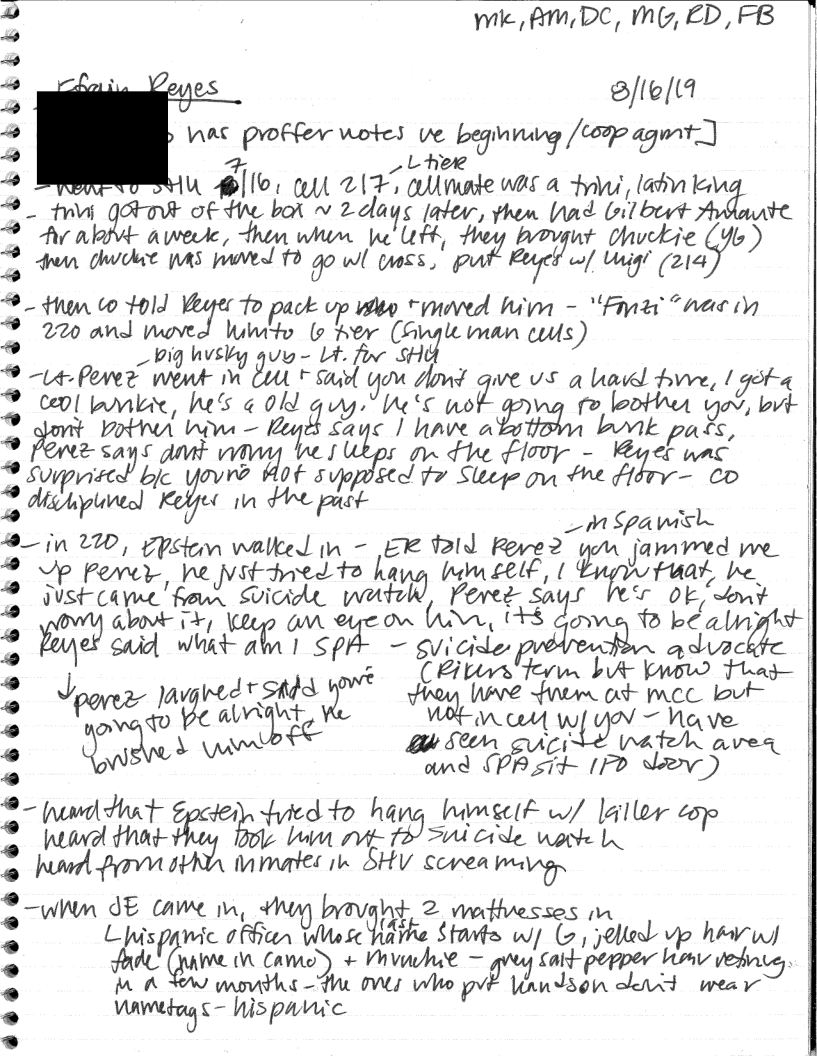 MK, AM, DC, MG, RD, FB
Efrain Reyes 8/16/19
has proffer notes re beginning/coop agmt]
L tier
- went to SHU 7/16, cell 217, cellmate was a trini, latin king
- trini got out of the box ~ 2 days later, then had Gilbert Armante
for about a week, then when he left, they brought chuckie (YG)
then chuckie was moved to go w/ cross, put Reyes w/ Luigi (214)
- then CO told Reyes to pack up + moved him - "Fonzi" was in
220 and moved him to G tier (single man cells)
big husky guy - Lt. for SHU
- Lt. Perez went in cell + said you don't give us a hard time, I got a
cool bunkie, he's a old guy. he's not going to bother you, but
don't bother him - Reyes says I have a bottom bunk pass,
Perez says dont worry he sleeps on the floor - Reyes was
surprised b/c you're not supposed to sleep on the floor - CO
disciplined Reyes in the past
- in Spanish
- in 220, Epstein walked in - ER told Perez you jammed me
up Perez, he just tried to hang himself, I know that, he
just came from suicide watch, Perez says he's ok, don't
worry about it, keep an eye on him, it's going to be alright
Reyes said what am I SPA - suicide prevention advocate
(Rikers term but know that
they have them at MCC but
not in cell w/ you - have
seen suicide watch area
and SPA sit IFO door)
↓ Perez laughed + said you're
going to be alright, he
brushed him off
- heard that Epstein tried to hang himself w/ killer cop
heard that they took him out to suicide watch
heard from other inmates in SHU screaming
- when JE came in, they brought 2 mattresses in
L hispanic officer whose last name starts w/ G, jelled up hair w/
fade (name in camo) + munchie - grey salt pepper hair retiring
in a few months - the ones who put hands on don't wear
nametags - hispanic